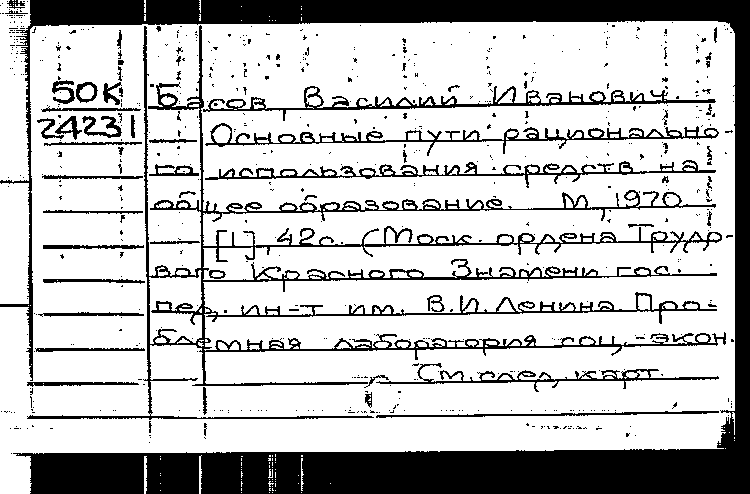 50К Басов, Василий Иванович.
24231 Основные пути рационально-
го использования средств на
общее образование. М., 1970
[1], 42с. (Моск. ордена Трудо-
вого Красного Знамени гос.
пед. ин-т им. В.И.Ленина Про-
блемная лаборатория соц.-экон.
См.след.карт.